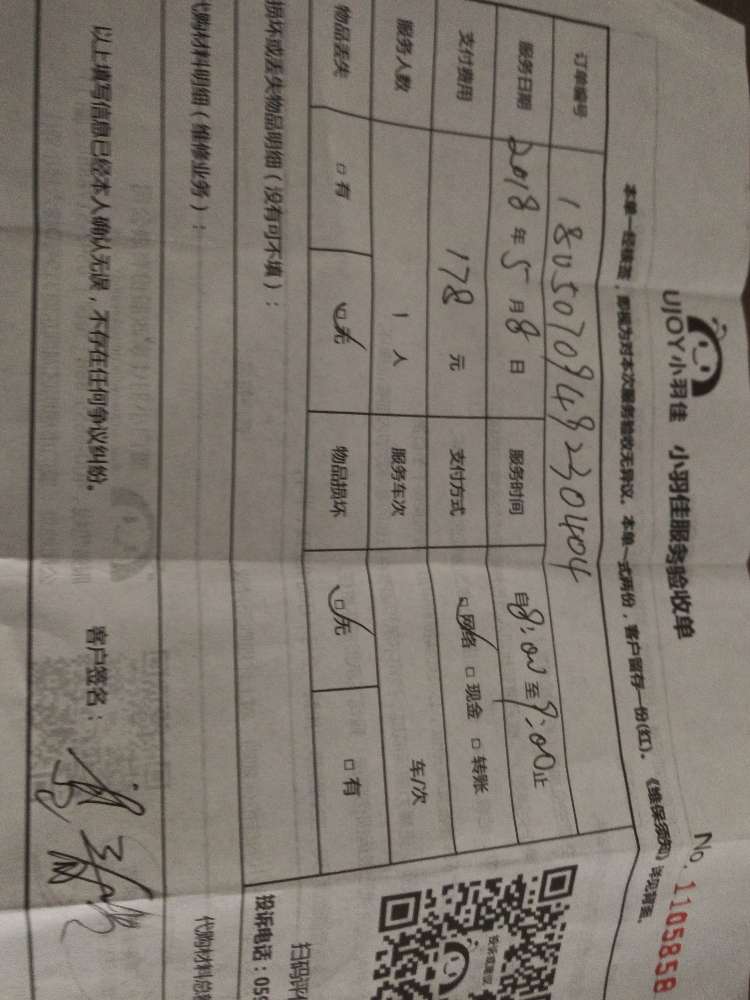 UJOY小羽佳 小羽佳服务验收单
No. 1105858
本单一经核签，即视为对本次服务验收无异议。本单一式两份，客户留存一份(红)。《维保须知》详见背面。
订单编号 1805070948230404
服务日期 2018年5月8日 服务时间 自8:00至9:00止
支付费用 178元 支付方式 □网络 □现金 □转账
服务人数 1人 服务车次 车/次
物品丢失 □有 □无 物品损坏 □无 □有
损坏或丢失物品明细（没有可不填）：
扫码评
投诉电话：059
代购材料明细（维修业务）：
代购材料总
以上填写信息已经本人确认无误，不存在任何争议纠纷。 客户签名：